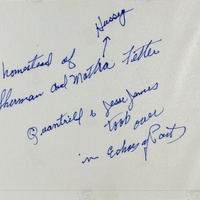 Hussey
homestead of
herman and Martha Tetter
Quantrill & Jesse James
Took over
in Echoes of Past